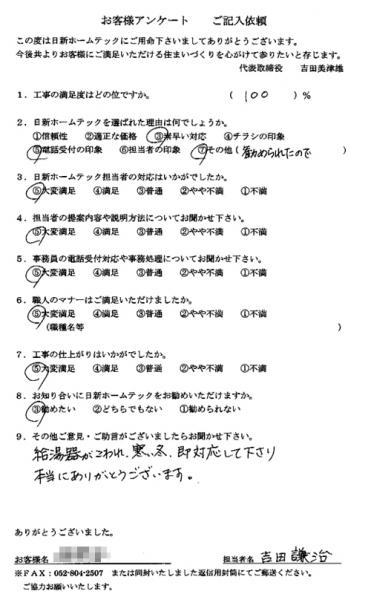 お客様アンケート　ご記入依頼
この度は日新ホームテックにご用命下さいましてありがとうございます。
今後共よりお客様にご満足いただける住まいづくりを心がけて参りたいと存じます。
代表取締役　吉田美津雄
1．工事の満足度はどの位ですか。　（ 100 ）％
2．日新ホームテックを選ばれた理由は何でしょうか。
①信頼性　②適正な価格　③素早い対応　④チラシの印象
⑤電話受付の印象　⑥担当者の印象　⑦その他（勧められたので）
3．日新ホームテック担当者の対応はいかがでしたか。
⑤大変満足　④満足　③普通　②やや不満　①不満
4．担当者の提案内容や説明方法についてお聞かせ下さい。
⑤大変満足　④満足　③普通　②やや不満　①不満
5．事務員の電話受付対応や事務処理についてお聞かせ下さい。
⑤大変満足　④満足　③普通　②やや不満　①不満
6．職人のマナーはご満足いただけましたか。
⑤大変満足　④満足　③普通　②やや不満　①不満
（職種名等　）
7．工事の仕上がりはいかがでしたか。
⑤大変満足　④満足　③普通　②やや不満　①不満
8．お知り合いに日新ホームテックをお勧めいただけますか。
③勧めたい　②どちらでもない　①勧められない
9．その他ご意見・ご助言がございましたらお聞かせ下さい。
給湯器がこわれ、寒い冬、即対応して下さり
本当にありがとうございます。
ありがとうございました。
お客様名　担当者名 吉田謙治
※ＦＡＸ：052-804-2507　または同封いたしました返信用封筒にてご郵送ください。
ご協力お願いいたします。